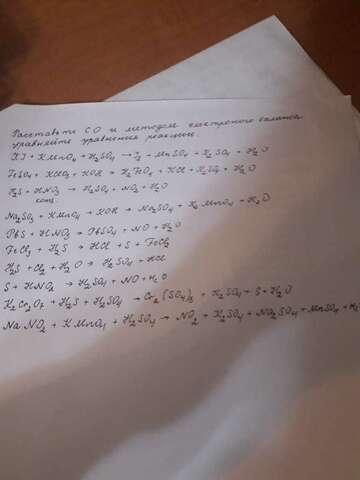 Расставьте СО и методом электронного баланса
уравняйте уравнения реакций.
KI + KMnO4 + H2SO4 → I2 + MnSO4 + K2SO4 + H2O
FeSO4 + KClO3 + KOH → K2FeO4 + KCl + K2SO4 + H2O
H2S + HNO3 → H2SO4 + NO2 + H2O
конц.
Na2SO3 + KMnO4 + KOH → Na2SO4 + K2MnO4 + H2O
PbS + HNO3 → PbSO4 + NO + H2O
FeCl3 + H2S → HCl + S + FeCl2
H2S + Cl2 + H2O → H2SO4 + HCl
S + HNO3 → H2SO4 + NO + H2O
K2Cr2O7 + H2S + H2SO4 → Cr2(SO4)3 + K2SO4 + S + H2O
NaNO2 + KMnO4 + H2SO4 → NO2 + K2SO4 + NO2SO4 + MnSO4 + H2